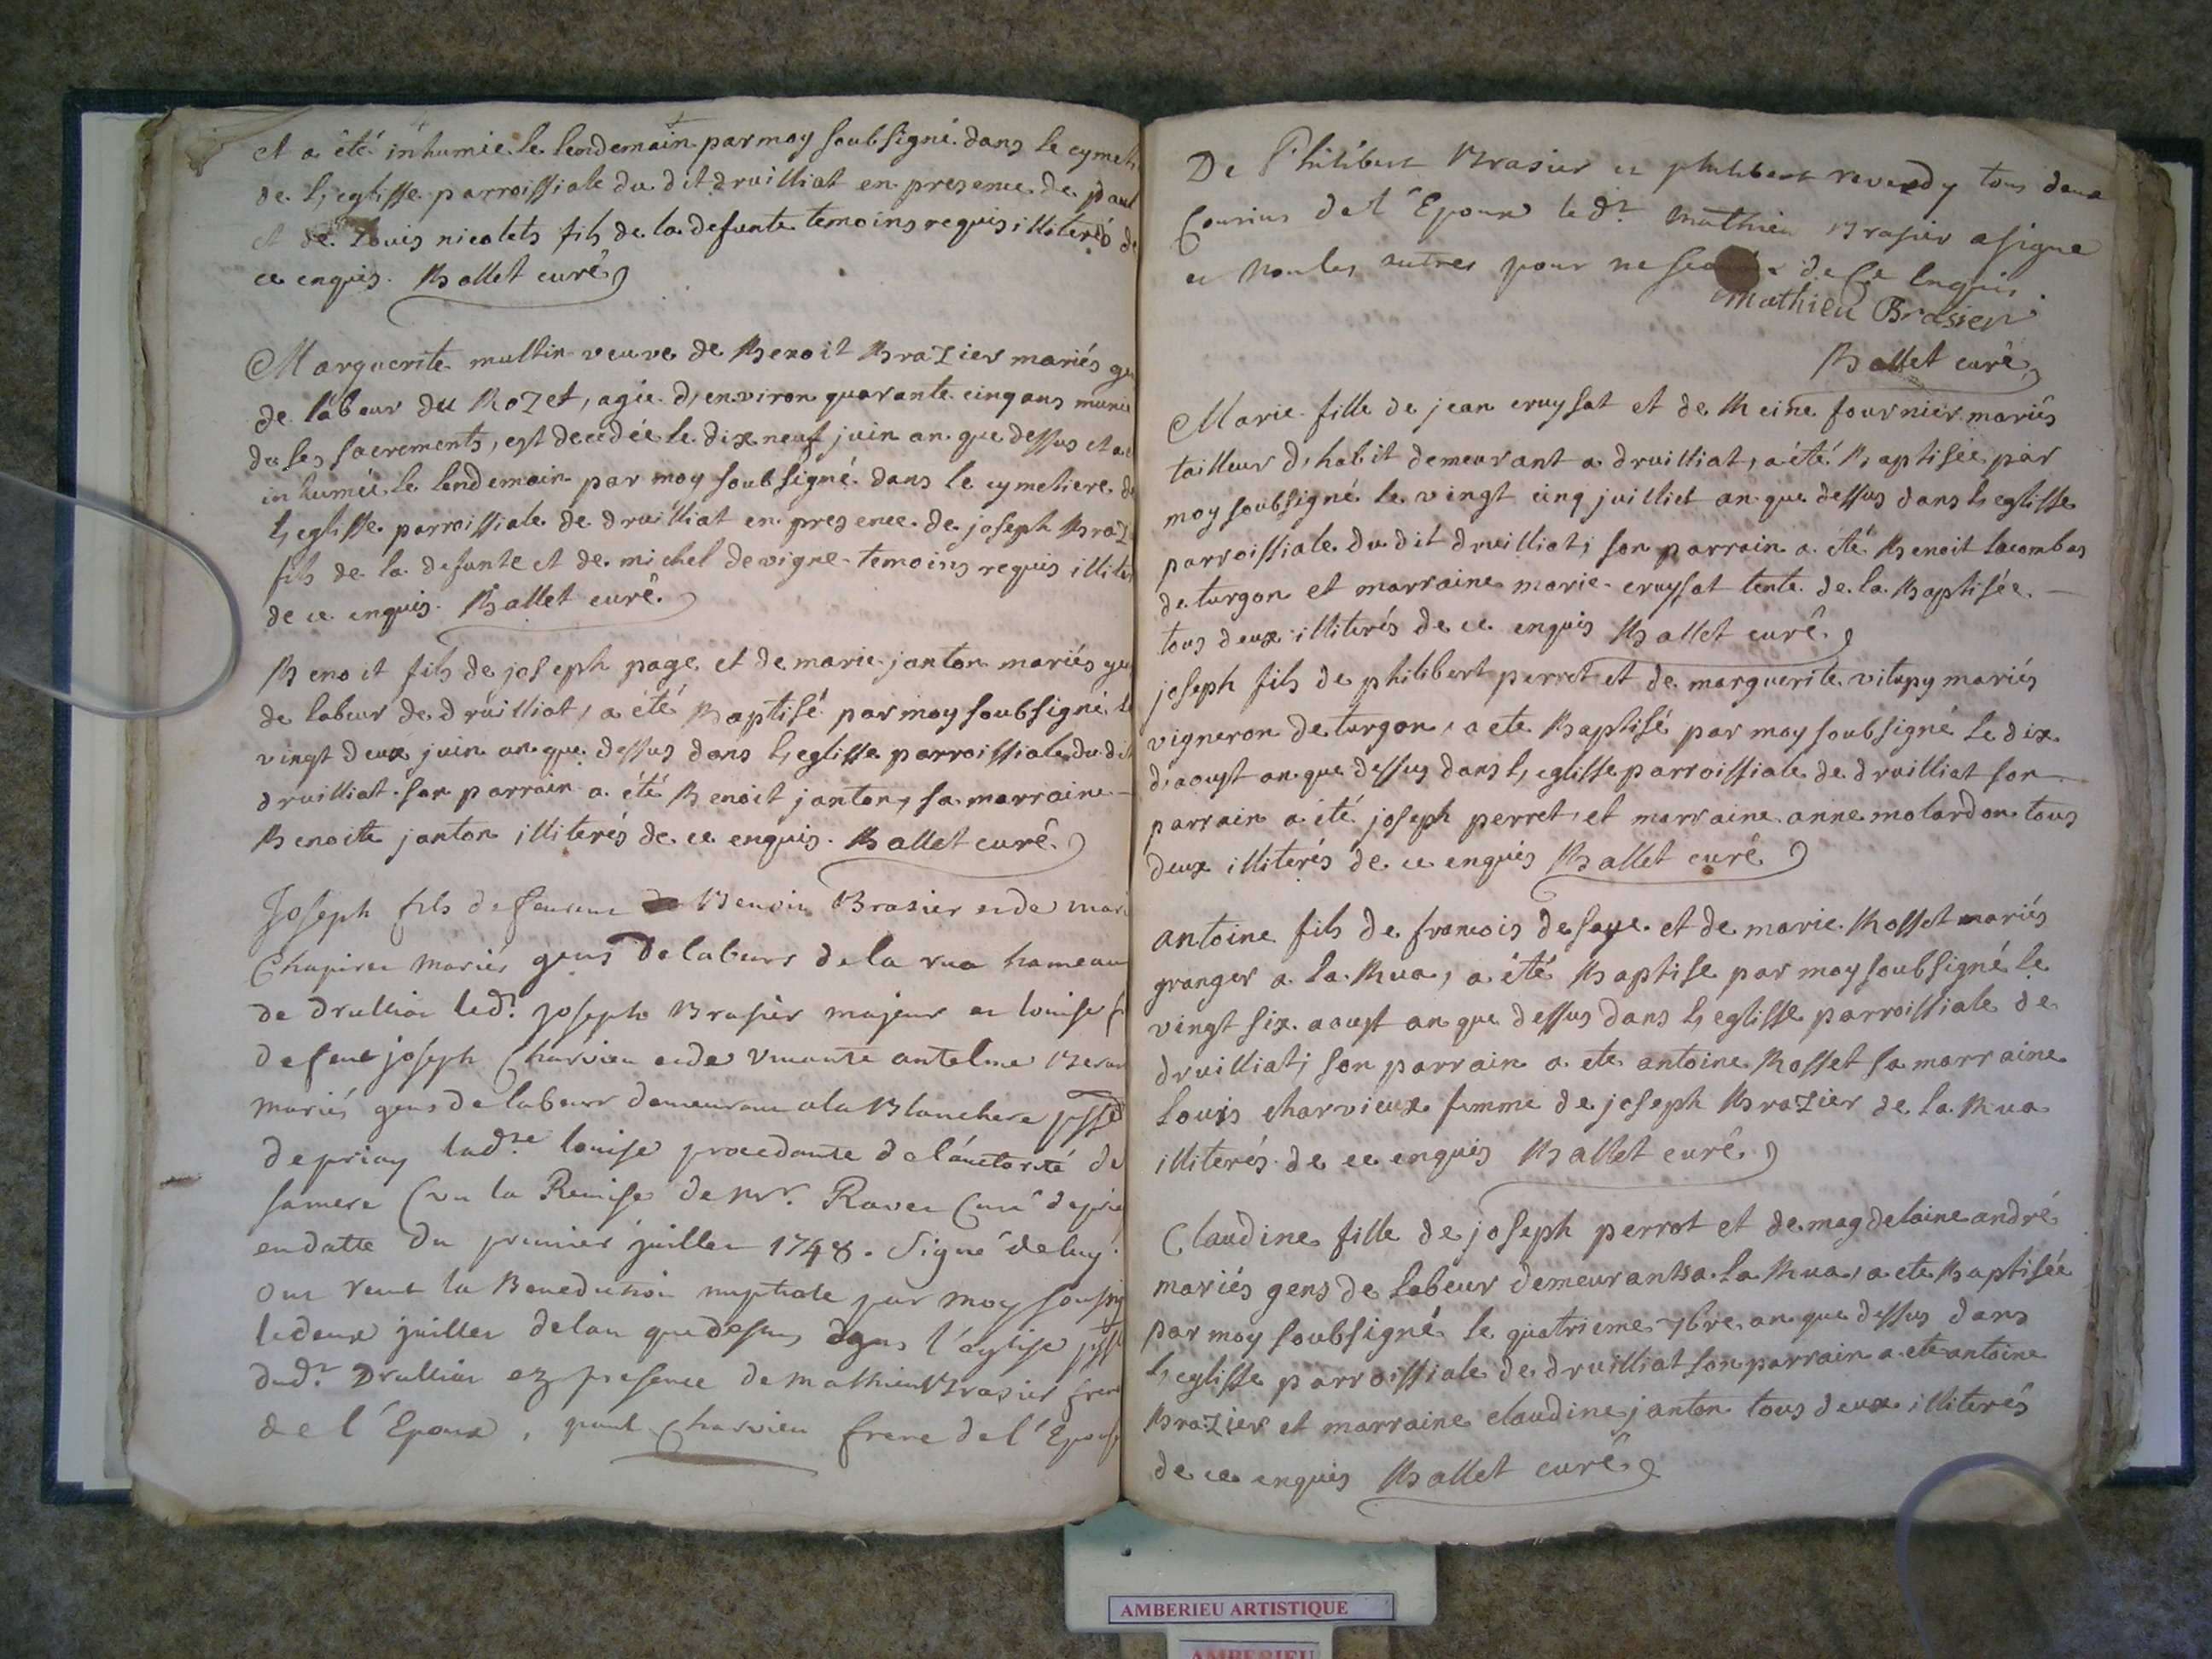 et a été inhumée le lendemain par moy soubsigné dans le cymeti
de l'eglisse parroissiale du dit druilliat en presence de paul
et de Louis nicolets fils de la defunte temoins requis illiterés de
ce enquis. Ballet curé
Marguerite multin veuve de Benoit Brazier mariés ge
de labeur du Rozet, agée d'environ quarante cinq ans munie
de ses sacrements, est decedée le dix neuf juin an que dessus et a e
inhumée le lendemain par moy soubsigné dans le cymetiere de
l'eglisse parroissiale de druilliat en presence de joseph Braz
fils de la defunte et de michel devigne temoins requis illiter
de ce enquis. Ballet curé.
Benoit fils de joseph page et de marie janton mariés gen
de labeur de druilliat, a été Baptisé par moy soubsigné le
vingt deux juin an que dessus dans l'eglisse parroissiale du dit
druilliat. son parrain a été Benoit janton, sa marraine
Benoite janton illiterés de ce enquis. Ballet curé.
Joseph fils de feu Benoit Brasier et de mari
mariés gens de labeurs de la rua hameau
de drullia led.t joseph Brasier majeur et louise f
de feu joseph Charvieu et de vivante antelme
mariés gens de labeur demeurant a la Blanchere psse
de priay lad.te louise procedante de l'auctorité de
sa mere (vu la Remise de Mr. Ravet Curé de pria
en datte du premier juillet 1748. Signé de luy.
ont recut la Benediction nuptiale par moy soussig
le deux juillet de lan que dessus dans l'eglise
dud.t Drulliat ez presence de mathieu Brasier frere
de l'Epoux, paul Charvieu frere de l'Epous
De Philibert Brasier et philibert reverdy tous deux
Cousins de l'Epoux led.t mathieu Brasier a signé
et non les autres pour ne de Ce Enquis.
mathieu Brasier
Ballet curé
Marie fille de jean cruysat et de Reine fournier mariés
tailleur d'habit demeurant a druilliat, a été Baptisée par
moy soubsigné le vingt cinq juilliet an que dessus dans l'eglisse
parroissiale du dit druilliat, son parrain a été Benoit lacombes
de turgon et marraine marie cruysat tente de la Baptisée.
tous deux illiterés de ce enquis Ballet curé.
joseph fils de philibert perret et de marguerite vitupy mariés
vigneron de turgon, a ete Baptisé par moy soubsigné le dix
d'aoust an que dessus dans l'eglisse parroissiale de druilliat son
parrain a été joseph perret, et marraine anne molardon tous
deux illiterés de ce enquis Ballet curé
antoine fils de francois desaye et de marie Rosset mariés
granger a la Rua, a été Baptise par moy soubsigné le
vingt six aoust an que dessus dans l'eglisse parroissiale de
druilliat, son parrain a ete antoine Rosset sa marraine
Louis charvieux femme de joseph Brazier de la Rua
illiterés de ce enquis Ballet curé.
Claudine fille de joseph perrot et de magdelaine andré
mariés gens de labeur demeurants a la Rua, a ete Baptisée
par moy soubsigné le quatrieme 7bre an que dessus dans
l'eglisse parroissiale de druilliat son parrain a ete antoine
Brazier et marraine claudine janton tous deux illiterés
de ce enquis Ballet curé
AMBERIEU ARTISTIQUE
AMBERIEU